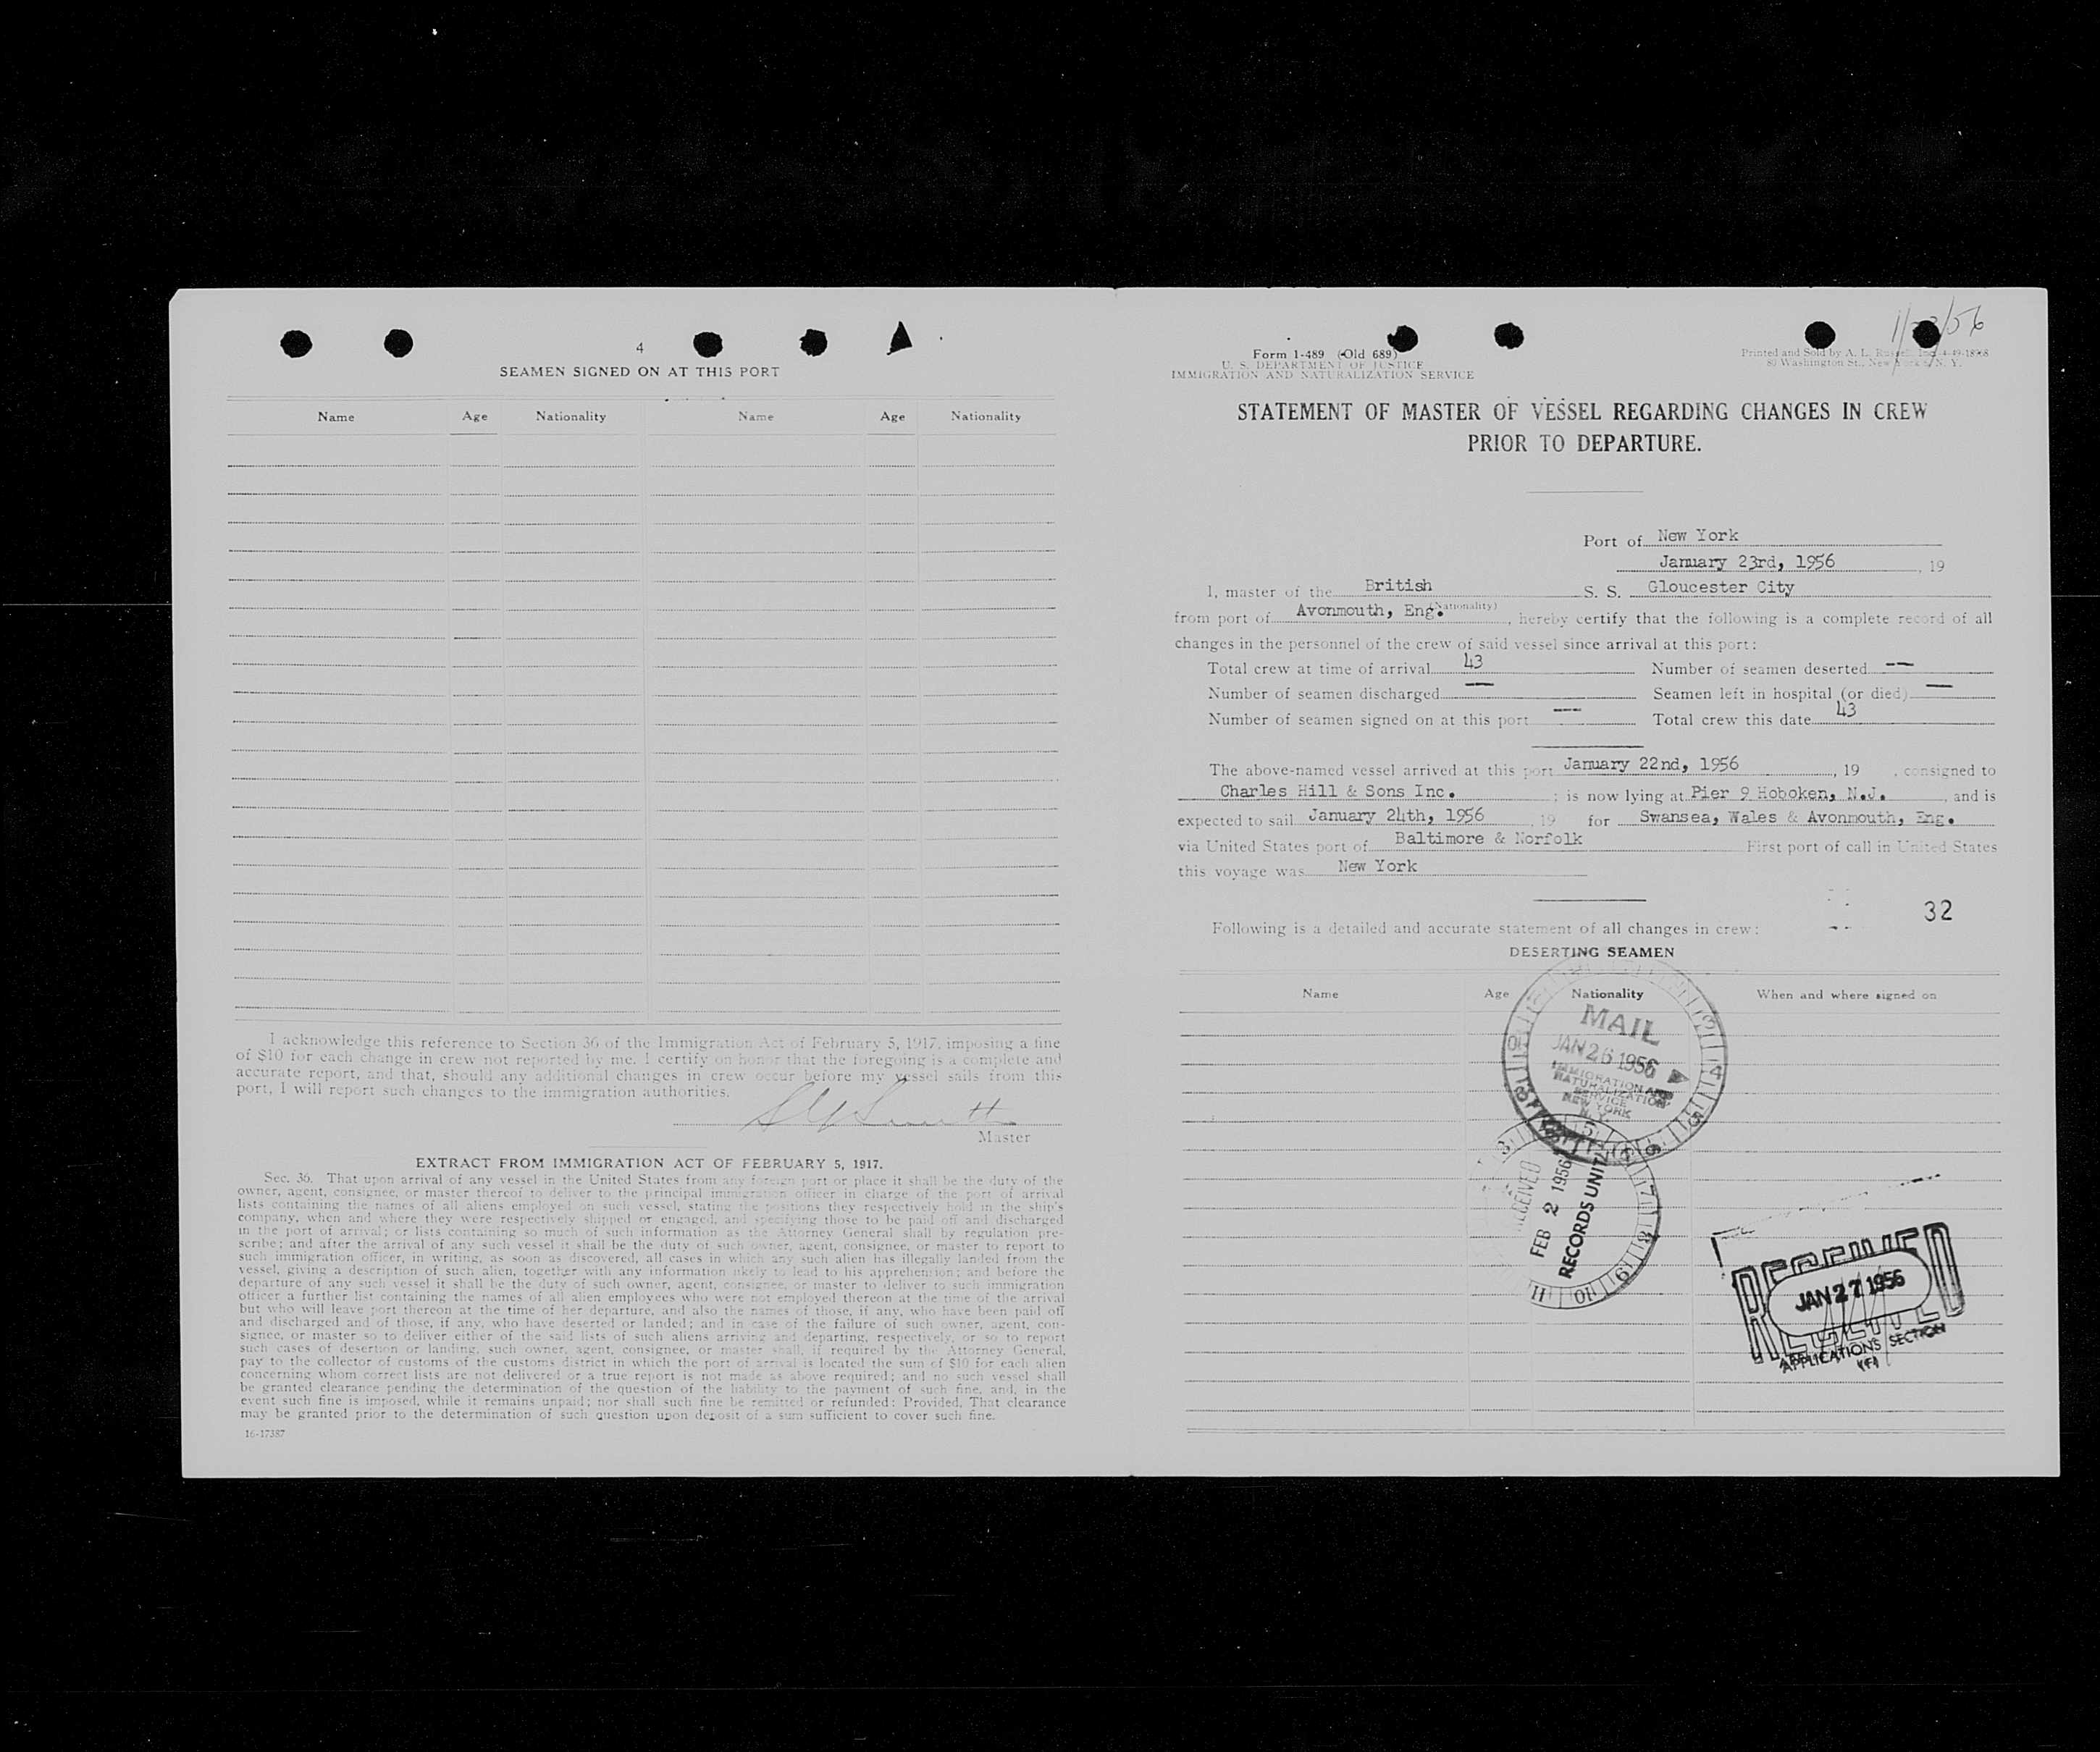 4
SEAMEN SIGNED ON AT THIS PORT
Name Age Nationality Name Age Nationality
I acknowledge this reference to Section 36 of the Immigration Act of February 5, 1917, imposing a fine
of $10 for each change in crew not reported by me. I certify on honor that the foregoing is a complete and
accurate report, and that, should any additional changes in crew occur before my vessel sails from this
port, I will report such changes to the immigration authorities.
Master
EXTRACT FROM IMMIGRATION ACT OF FEBRUARY 5, 1917.
Sec. 36. That upon arrival of any vessel in the United States from any foreign port or place it shall be the duty of the
owner, agent, consignee, or master thereof to deliver to the principal immigration officer in charge of the port of arrival
lists containing the names of all aliens employed on such vessel, stating the positions they respectively hold in the ship's
company, when and where they were respectively shipped or engaged, and specifying those to be paid off and discharged
in the port of arrival; or lists containing so much of such information as the Attorney General shall by regulation pre-
scribe; and after the arrival of any such vessel it shall be the duty of such owner, agent, consignee, or master to report to
such immigration officer, in writing, as soon as discovered, all cases in which any such alien has illegally landed from the
vessel, giving a description of such alien, together with any information likely to lead to his apprehension; and before the
departure of any such vessel it shall be the duty of such owner, agent, consignee, or master to deliver to such immigration
officer a further list containing the names of all alien employees who were not employed thereon at the time of the arrival
but who will leave port thereon at the time of her departure, and also the names of those, if any, who have been paid off
and discharged and of those, if any, who have deserted or landed; and in case of the failure of such owner, agent, con-
signee, or master so to deliver either of the said lists of such aliens arriving and departing, respectively, or so to report
such cases of desertion or landing, such owner, agent, consignee, or master shall, if required by the Attorney General,
pay to the collector of customs of the customs district in which the port of arrival is located the sum of $10 for each alien
concerning whom correct lists are not delivered or a true report is not made as above required; and no such vessel shall
be granted clearance pending the determination of the question of the liability to the payment of such fine, and, in the
event such fine is imposed, while it remains unpaid; nor shall such fine be remitted or refunded: Provided, That clearance
may be granted prior to the determination of such question upon deposit of a sum sufficient to cover such fine.
16-17387
1/23/56
Form 1-489 (Old 689)
U. S. DEPARTMENT OF JUSTICE
IMMIGRATION AND NATURALIZATION SERVICE
Printed and Sold by A. L. Russell, Inc.
Washington St., New York, N. Y.
STATEMENT OF MASTER OF VESSEL REGARDING CHANGES IN CREW
PRIOR TO DEPARTURE.
Port of New York
January 23rd, 1956, 19
I, master of the British S. S. Gloucester City
(Nationality)
from port of Avonmouth, Eng., hereby certify that the following is a complete record of all
changes in the personnel of the crew of said vessel since arrival at this port:
Total crew at time of arrival 43 Number of seamen deserted --
Number of seamen discharged -- Seamen left in hospital (or died) --
Number of seamen signed on at this port -- Total crew this date 43
The above-named vessel arrived at this port January 22nd, 1956, 19 , consigned to
Charles Hill & Sons Inc. ; is now lying at Pier 9 Hoboken, N.J. , and is
expected to sail January 24th, 1956, 19 for Swansea, Wales & Avonmouth, Eng.
via United States port of Baltimore & Norfolk First port of call in United States
this voyage was New York
32
Following is a detailed and accurate statement of all changes in crew:
DESERTING SEAMEN
Name Age Nationality When and where signed on
MAIL
JAN 26 1956
IMMIGRATION AND
NATURALIZATION
SERVICE
NEW YORK
N. Y.
RECEIVED
FEB 2 1956
RECORDS UNIT
RECEIVED
JAN 27 1956
APPLICATIONS SECTION